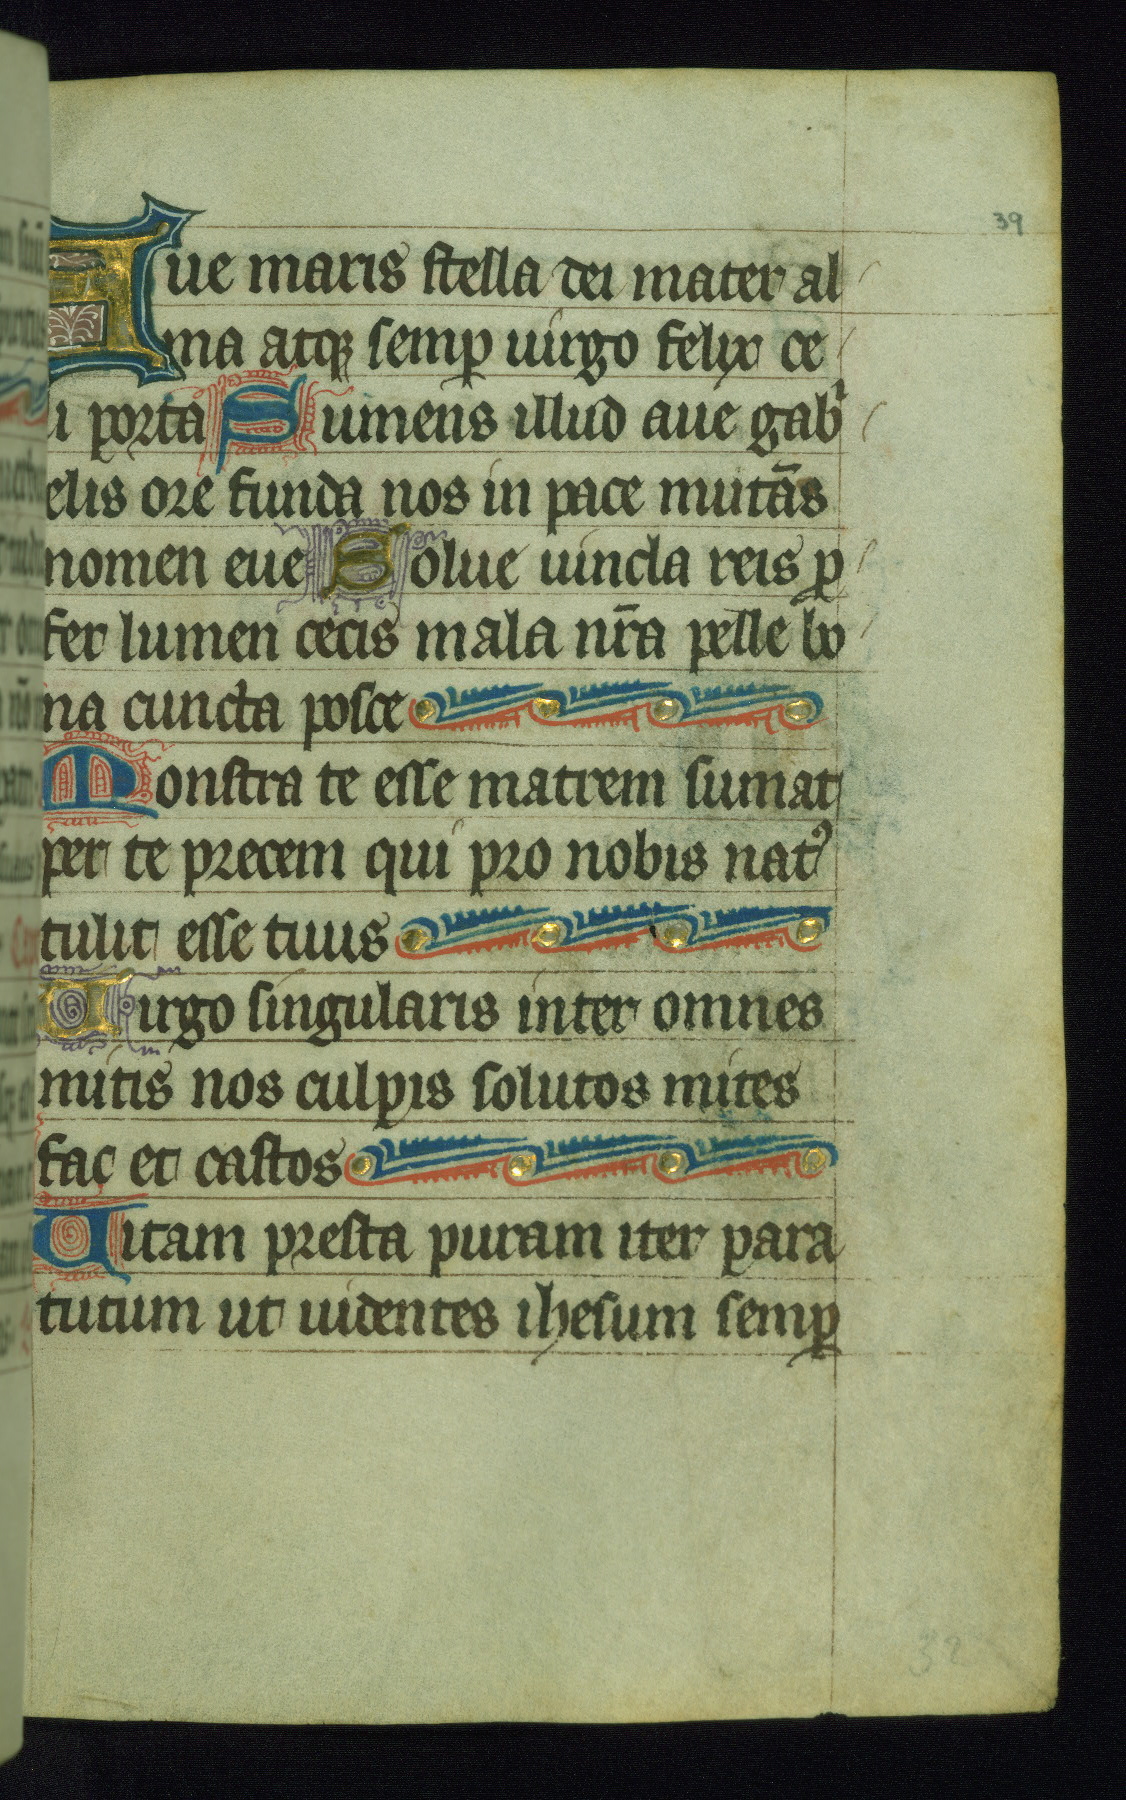 39
Aue maris stella dei mater al
ma atq; semꝑ uirgo felix ce
li porta Sumens illud aue gabⁱ
elis ore funda nos in pace mutās
nomen eue Solue uincla reis ꝓ
fer lumen cecis mala nr̄a pelle bo
na cuncta posce
Monstra te esse matrem sumat
per te precem qui pro nobis natꝰ
tulit esse tuus
Uirgo singularis inter omnes
mitis nos culpis solutos mites
fac et castos
Uitam presta puram iter para
tutum ut uidentes ihesum semꝑ
32